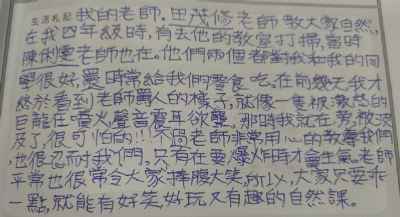 生活札記 我的老師,田茂修老師教大家自然,
在我四年級時,有去他的教室打掃,當時
陳俐雯老師也在。他們兩個看到我和我的同
學很好,還時常給我們零食吃,在前幾天我才
終於看到老師罵人的樣子,就像一隻被激怒的
巨龍在電火聲音震耳欲聾,那時我就在旁被波
及了,很可怕的!!!不過老師非常用心的教導我們,
也很忍耐我們,只有在要爆炸時才會生氣。老師
平常也很常令大家捧腹大笑,所以,大家只要乖
一點,就能有好笑好玩又有趣的自然課。